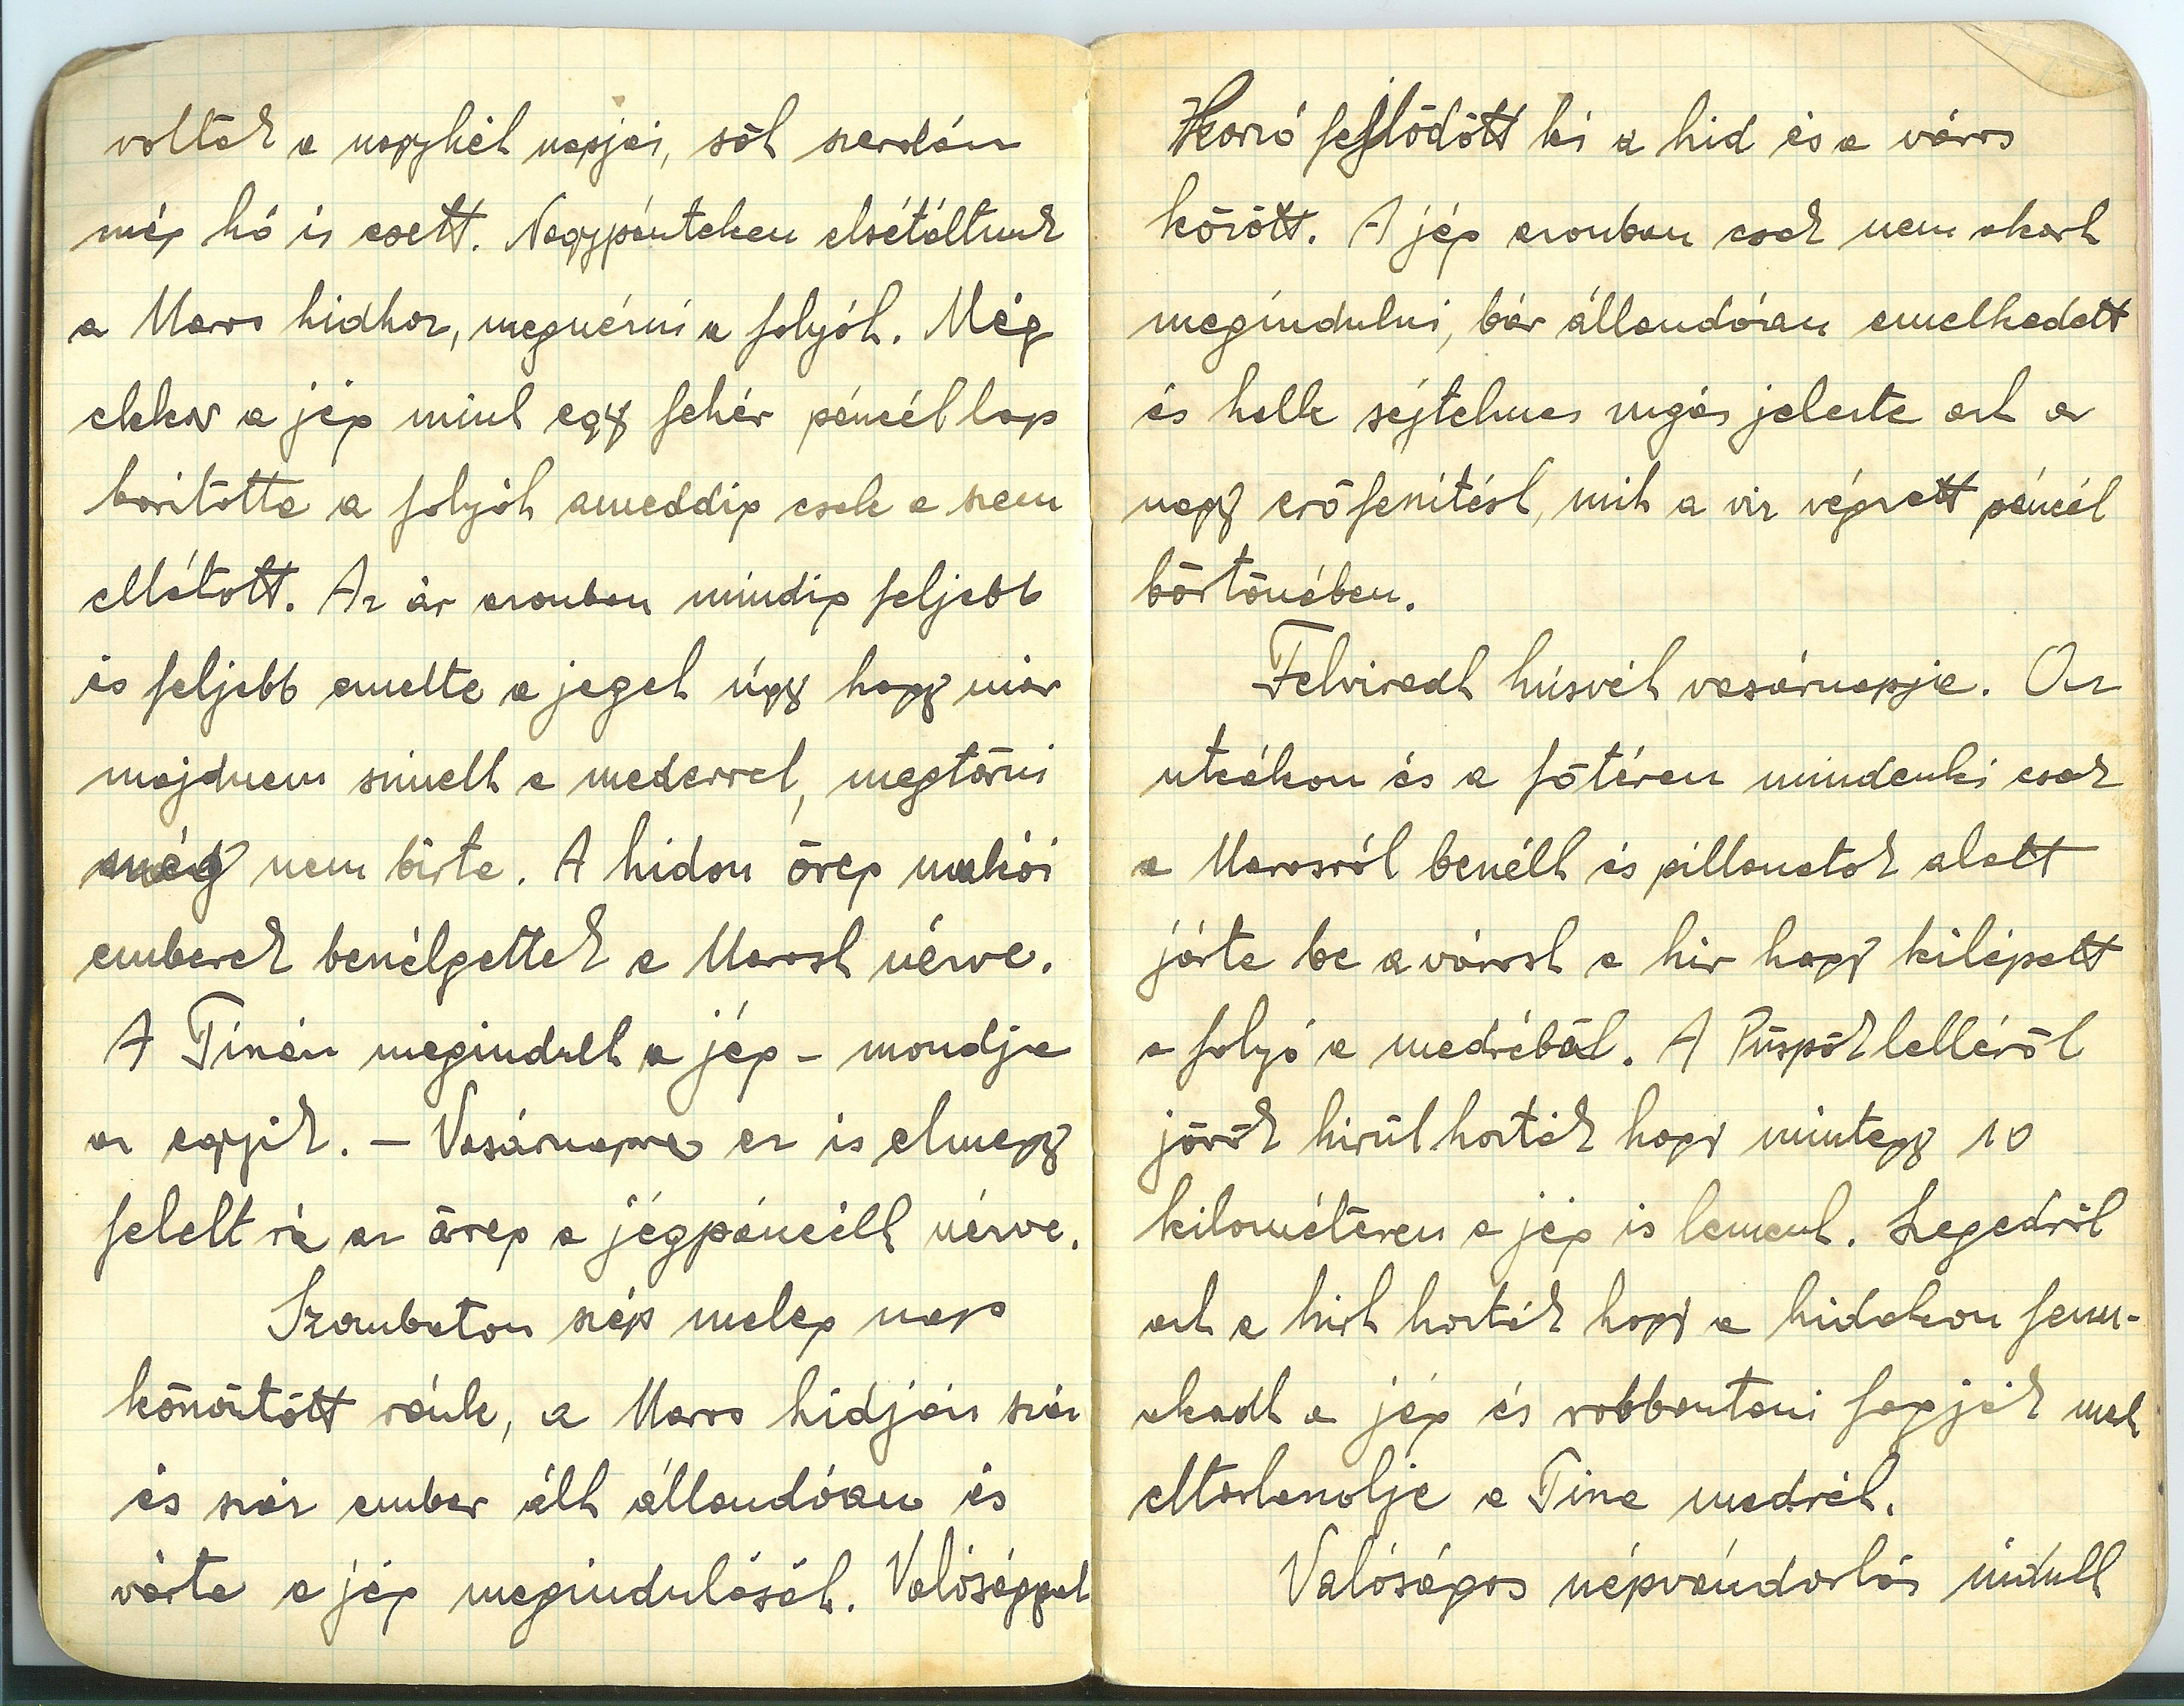 voltak a nagyhét napjai, sőt szerdán
még hó is esett. Nagypénteken elsétáltunk
a Maros hidhoz, megnézni a folyót. Még
ekkor a jég mint egy fehér páncél lap
boritotta a folyót ameddig csak a szem
ellátott. Az ár azonban mindig feljebb
és feljebb emelte a jeget úgy hogy már
majdnem szinelt a mederrel, megtörni
még nem birta. A hidon öreg makói
emberek beszélgettek a Marost nézve.
A Tiszán megindult a jég – mondja
az egyik. – Vasárnapra ez is elmegy
felelt rá az öreg a jégpáncélt nézve.
Szombaton szép meleg nap
köszöntött ránk, a Maros hídján száz
és száz ember állt állandóan és
várta a jég megindulását. Valósággal
Korzó fejlődött ki a hid és a város
között. A jég azonban csak nem akart
megíndulni, bár állandóan emelkedett
és halk sejtelmes zúgás jelezte azt a
nagy erőfeszítést, mit a viz végzett páncél
börtönében.
Felviradt húsvét vasárnapja. Az
utcákon és a főtéren mindenki csak
a Marosról beszélt és pillanatok alatt
járta be a várost a hir hogy kilépett
a folyó a medréből. A Püspöklelléről
jövők hirül hozták hogy mintegy 10
kilométeren a jég is lement. Szegedről
azt a hirt hozták hogy a hidakon fenn-
akadt a jég és robbantani fogják mert
eltorlaszolja a Tisza medrét.
Valóságos népvándorlás indult